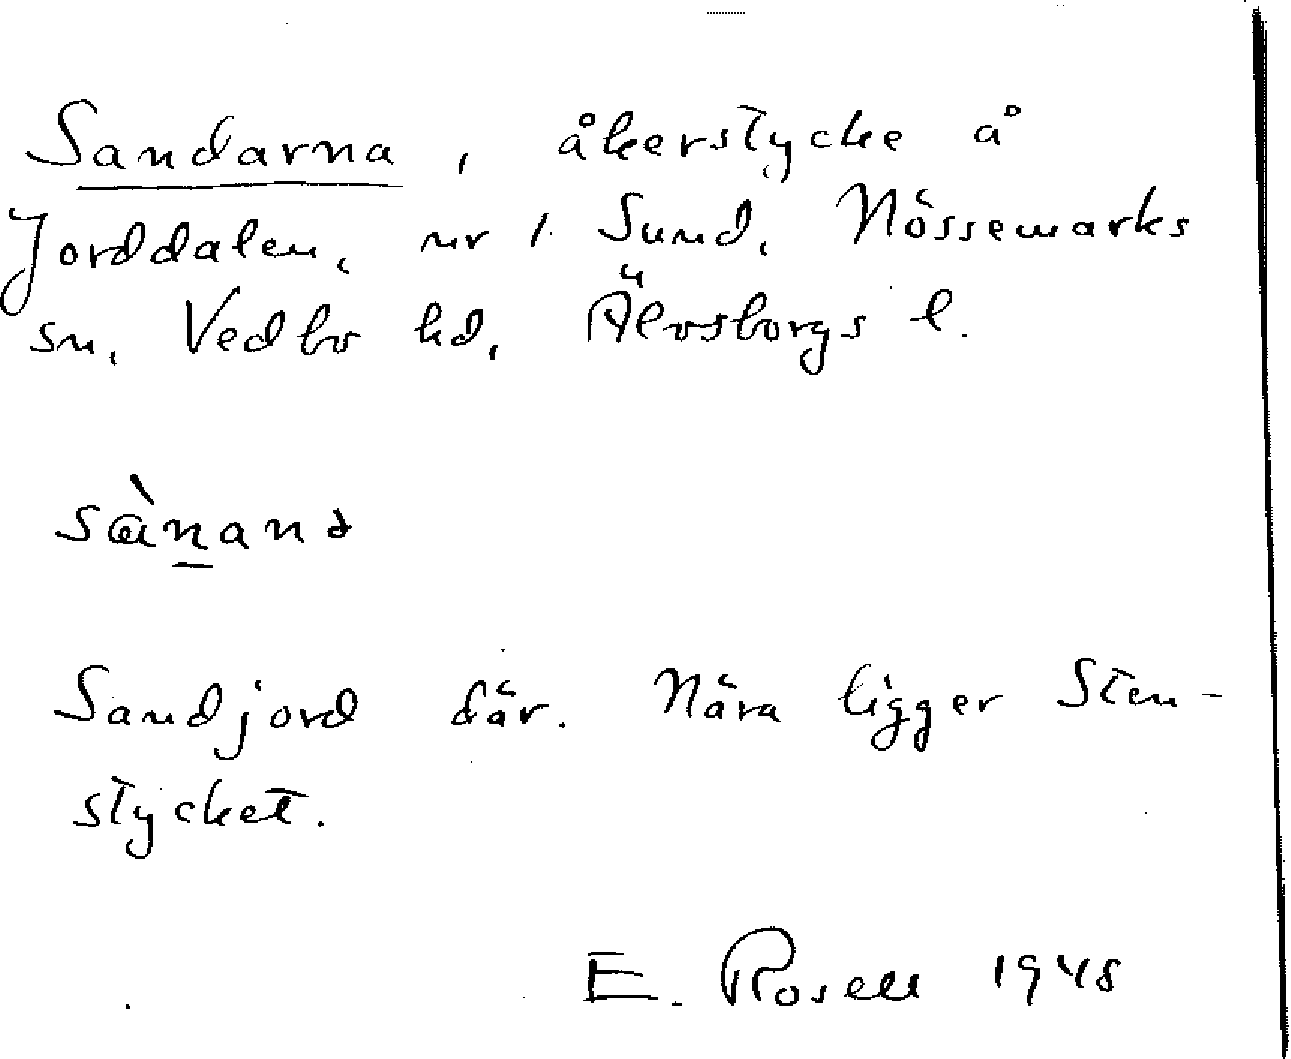 Sandarna, åkerstycke å
Jorddalen, ur 1. Sund, Nössemarks
sn, Vedbo hd, Älvsborgs l.
Sandjord där. Nära ligger Sten-
stycket.
E. Rosell 1948